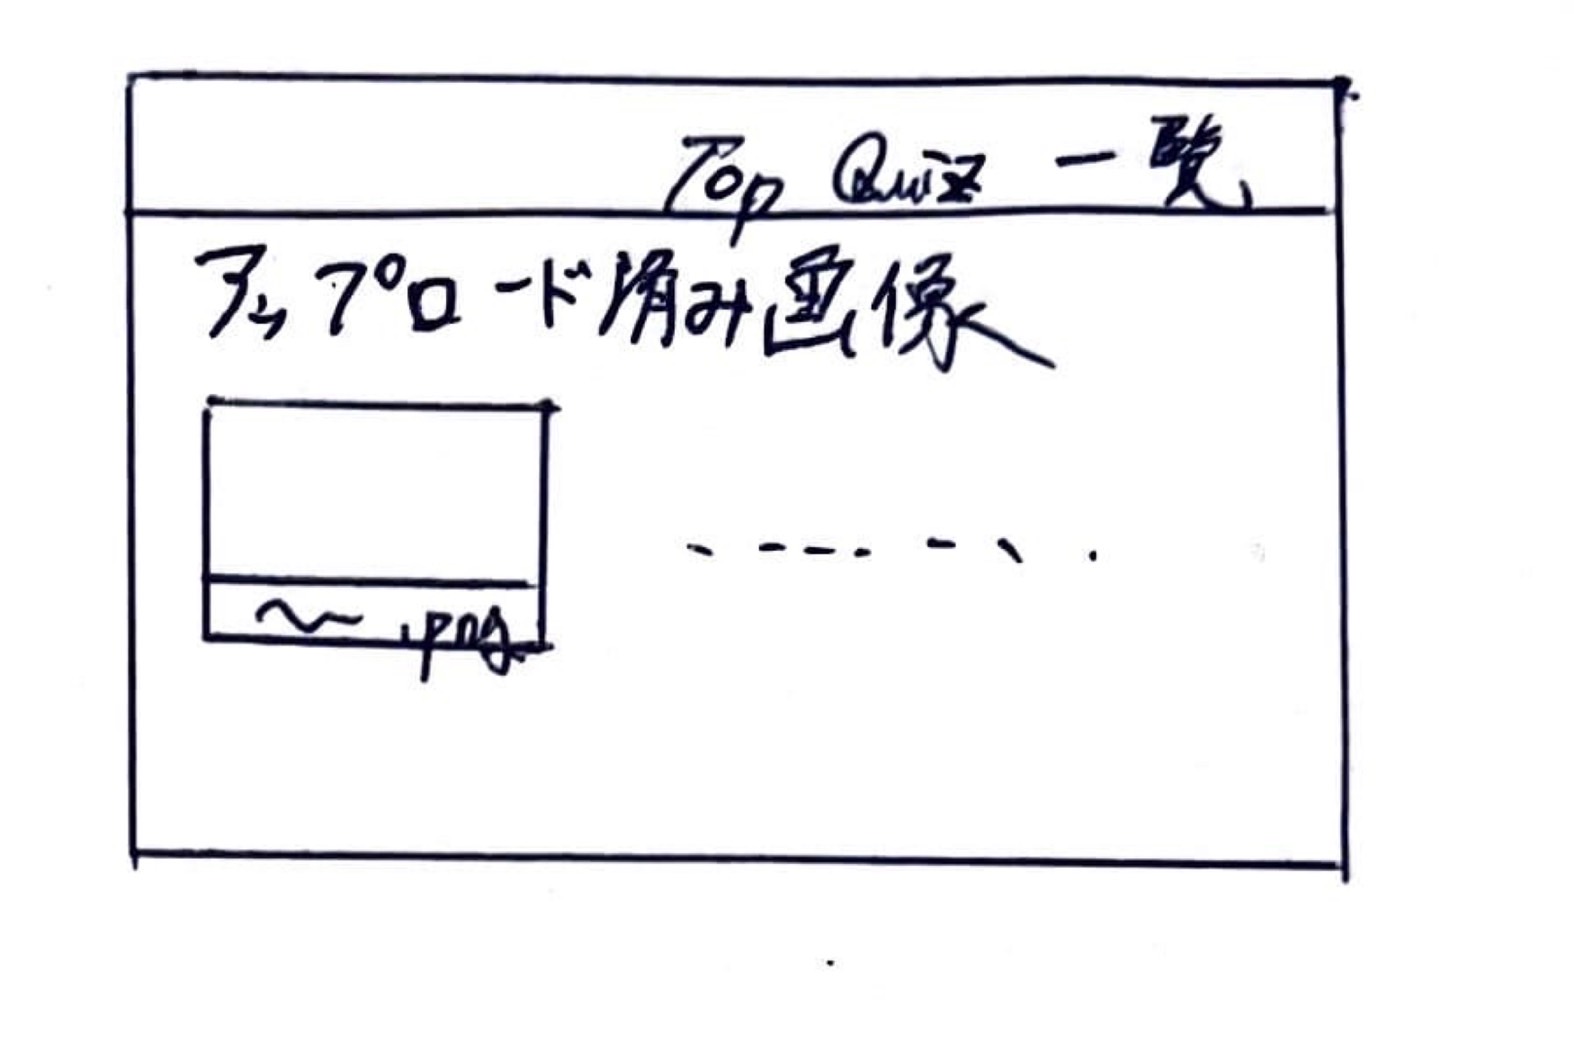 Top Quiz 一覧
アップロード済み画像
~ .png